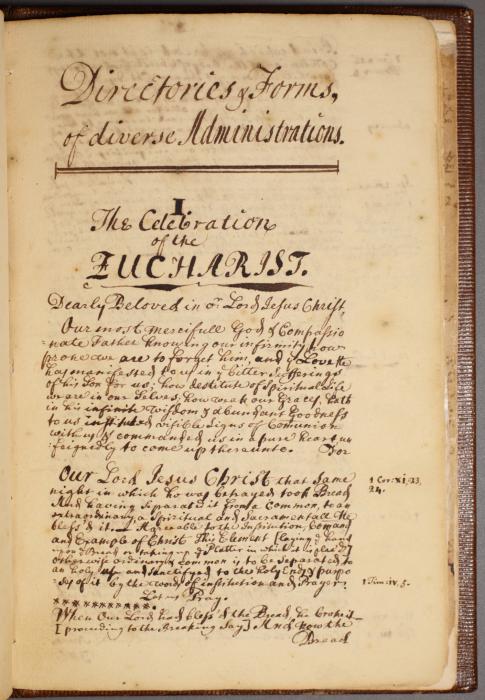 Directories & Forms,
of diverse Administrations.
I
The Celebration
of the
EUCHARIST.
Dearly Beloved in or Lord Jesus Christ,
Our most mercifull God & Compassio
nate Father knowing our infirmity, how
prone we are to forget him, and ye Love He
has manifested to us in ye bitter Sufferings
of his Son for us; how destitute of Spiritual Life
we are in our Selves, how weak our Graces, hath
in his infinite Wisdom & abundant Goodness
to us instituted visible Signs of Comunion
with us, & commanded us in a pure heart un
feignedly to come up thereunto. For
Our Lord Jesus Christ that same
night in which he was betrayed took Bread
And having Separated it from a Common, to an
extraordinary, a Spiritual and Sacramentall Use
bless'd it. Agreeable to the Institution, Comand
and Example of Christ This Element [laying ye hand
upon ye Bread or taking up ye Platter in which it is placed]
otherwise ordinary & common is to be Separated to
an holy use and Sanctifyed to the holy Ends & purpo
ses of it by the word of institution and Prayer.
1 Cor. XI. 23,
24.
1 Tim. IV. 5.
Let us Pray.
When Our Lord had bless'd the Bread, he broke it
[proceeding to the Breaking Say] And now the
Bread